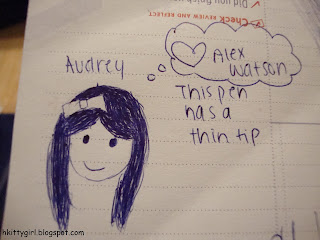 ✓Check REVIEW AND REFLECT
Did you finish
Audrey
Alex
Watson
This pen
has a
thin tip
hkittygirl.blogspot.com